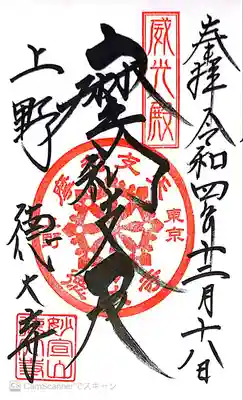 奉拝
令和四年十二月十八日
威光殿
摩利支天
上野
徳大寺
東京
妙宣山
CamScannerでスキャン